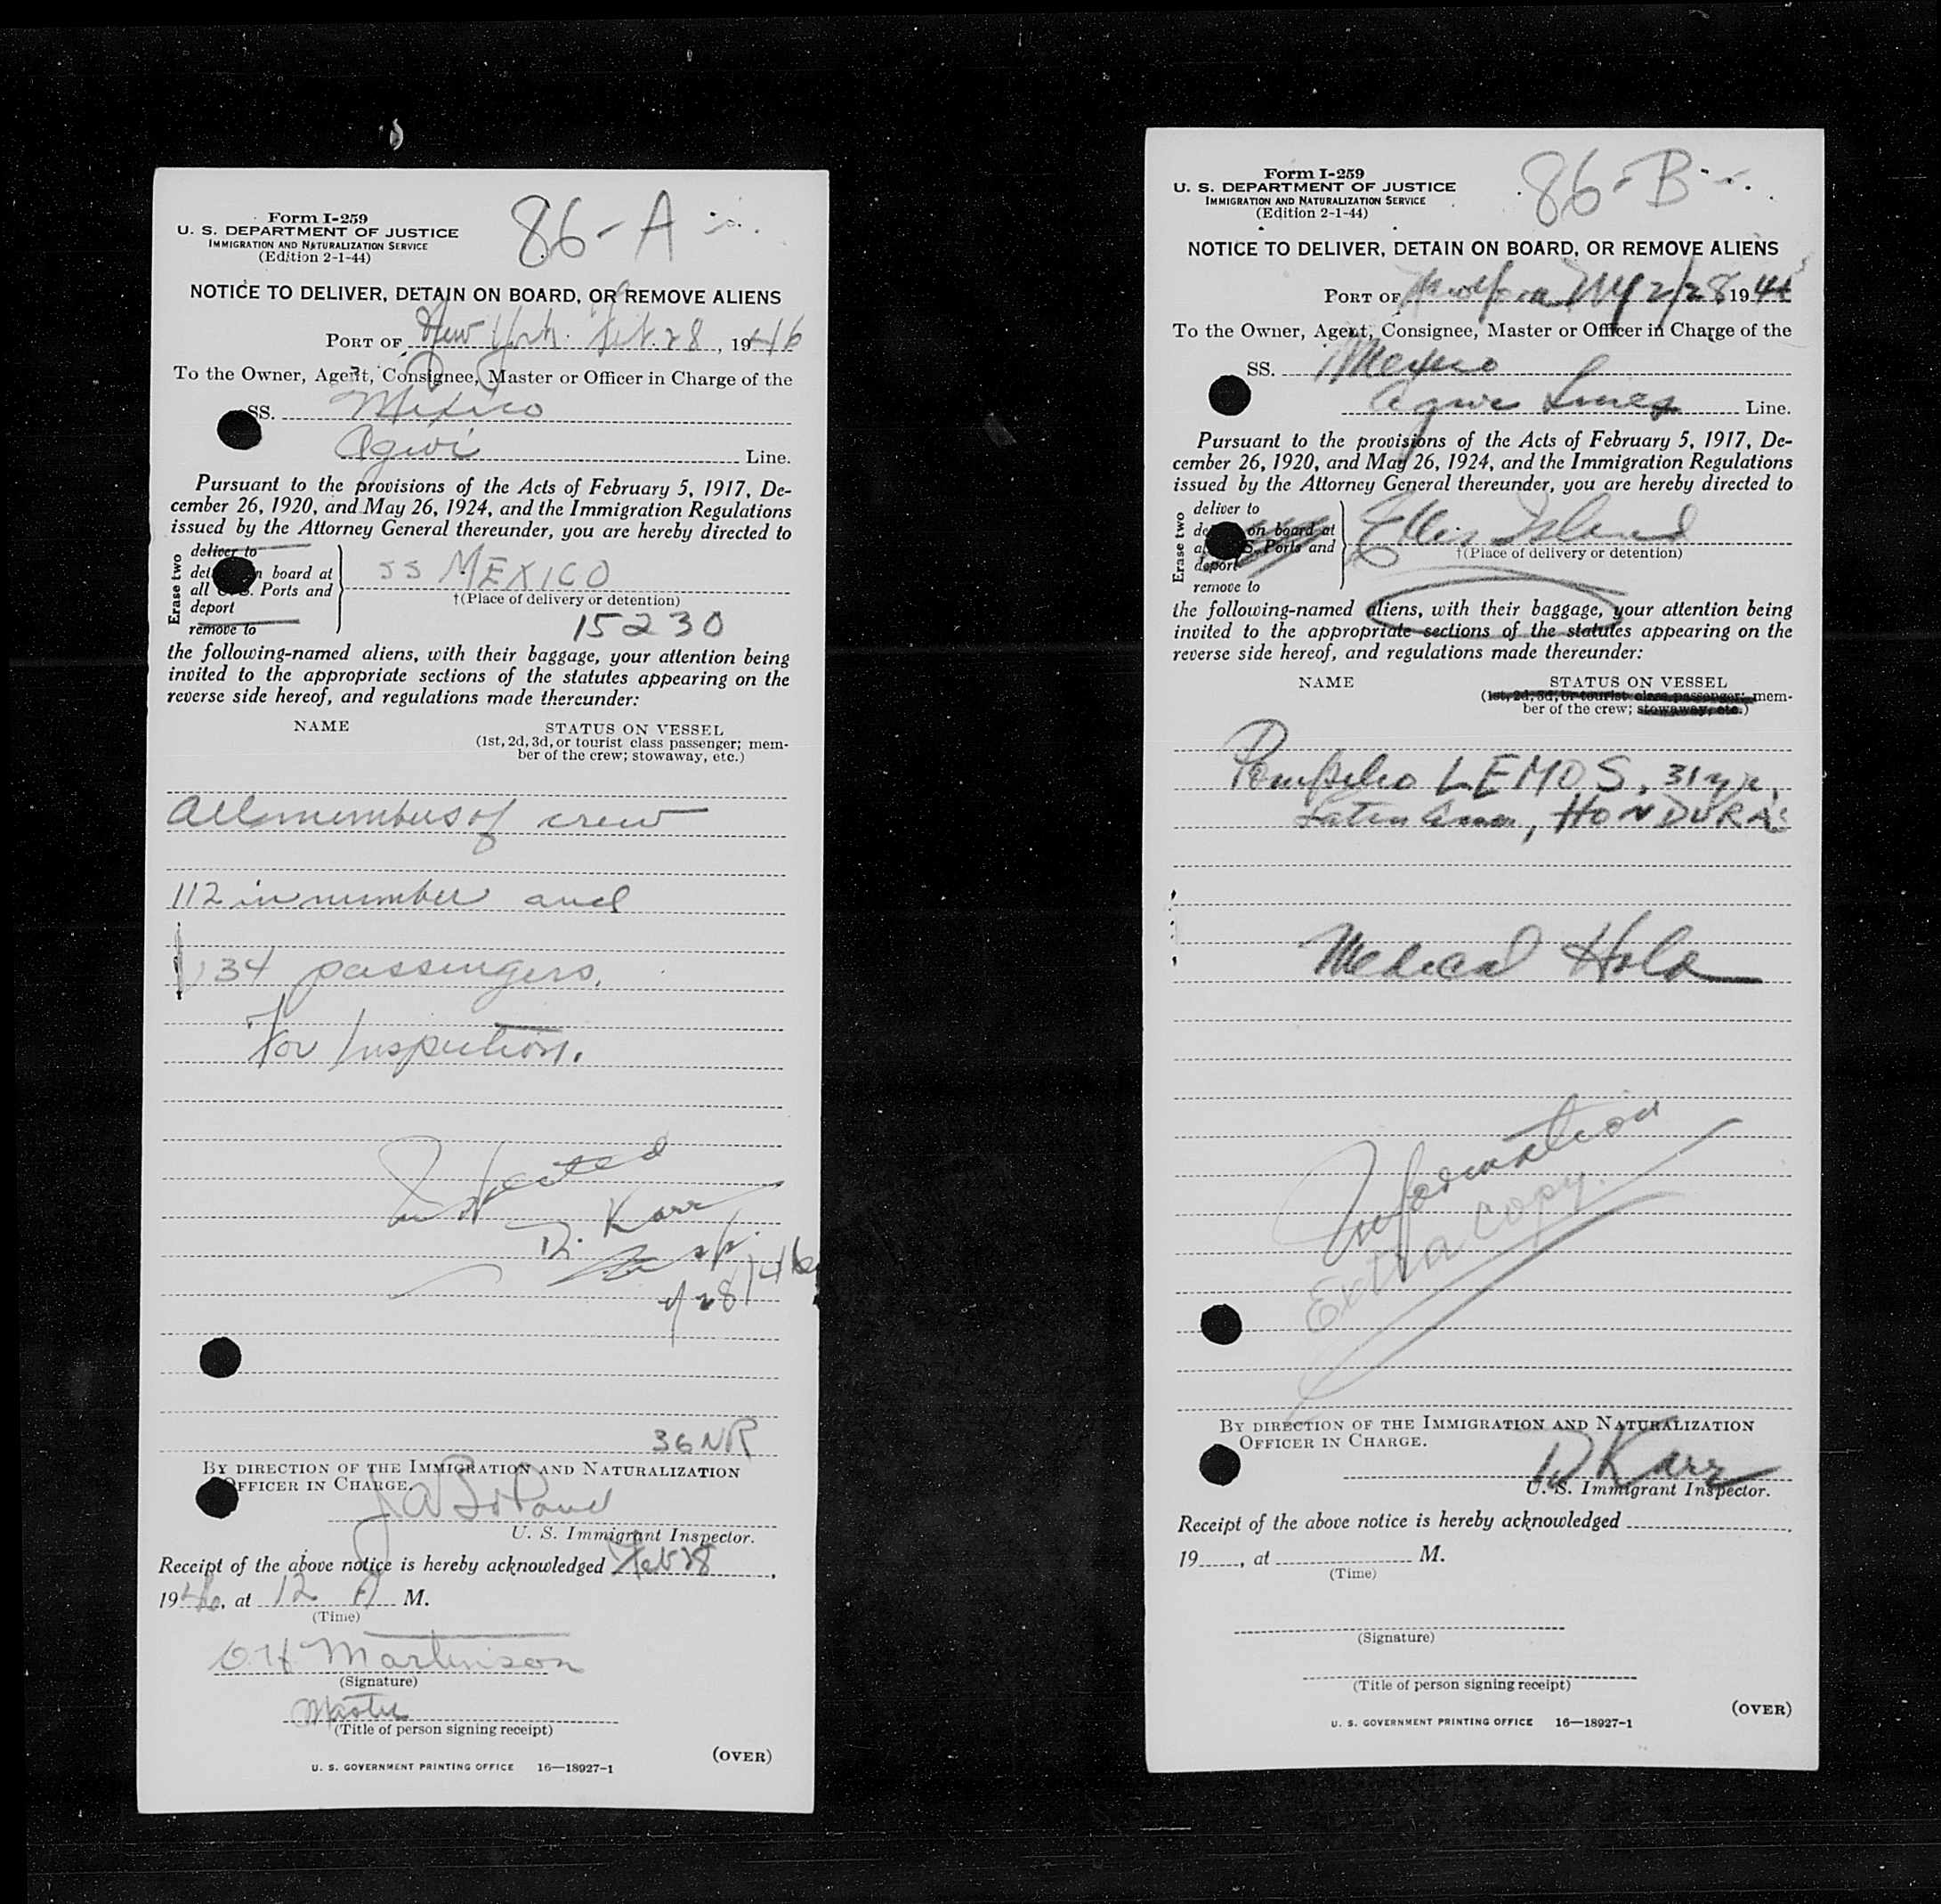 86-A
Form I-259
U. S. DEPARTMENT OF JUSTICE
IMMIGRATION AND NATURALIZATION SERVICE
(Edition 2-1-44)
NOTICE TO DELIVER, DETAIN ON BOARD, OR REMOVE ALIENS
PORT OF New York Feb. 28, 1946
To the Owner, Agent, Consignee, Master or Officer in Charge of the
SS. Mexico
Agwi Line.
Pursuant to the provisions of the Acts of February 5, 1917, De-
cember 26, 1920, and May 26, 1924, and the Immigration Regulations
issued by the Attorney General thereunder, you are hereby directed to
Erase two
deliver to
board at
all Ports and
deport
remove to
SS MEXICO
†(Place of delivery or detention)
15230
the following-named aliens, with their baggage, your attention being
invited to the appropriate sections of the statutes appearing on the
reverse side hereof, and regulations made thereunder:
NAME STATUS ON VESSEL
(1st, 2d, 3d, or tourist class passenger; mem-
ber of the crew; stowaway, etc.)
All members of crew
112 in number and
134 passengers.
For Inspection.
Inspected
D. Karr
Insp.
2/28/46
36 NR
BY DIRECTION OF THE IMMIGRATION AND NATURALIZATION
OFFICER IN CHARGE.
U. S. Immigrant Inspector.
Receipt of the above notice is hereby acknowledged Feb 28,
1946, at 12 A M.
(Time)
O H Martinson
(Signature)
Master
(Title of person signing receipt)
(OVER)
U. S. GOVERNMENT PRINTING OFFICE 16—18927-1
86-B
Form I-259
U. S. DEPARTMENT OF JUSTICE
IMMIGRATION AND NATURALIZATION SERVICE
(Edition 2-1-44)
NOTICE TO DELIVER, DETAIN ON BOARD, OR REMOVE ALIENS
PORT OF NY 2/28 19
To the Owner, Agent, Consignee, Master or Officer in Charge of the
SS. Mexico
Agwi Lines Line.
Pursuant to the provisions of the Acts of February 5, 1917, De-
cember 26, 1920, and May 26, 1924, and the Immigration Regulations
issued by the Attorney General thereunder, you are hereby directed to
Erase two
deliver to
on board at
Ports and
deport
remove to
Ellis Island
†(Place of delivery or detention)
the following-named aliens, with their baggage, your attention being
invited to the appropriate sections of the statutes appearing on the
reverse side hereof, and regulations made thereunder:
NAME STATUS ON VESSEL
(1st, 2d, 3d, or tourist class passenger; mem-
ber of the crew; stowaway, etc.)
Pompilio LEMOS, 31 yr,
Latin Amer, HONDURAS
Medical Hold
Information
Extra Copy.
BY DIRECTION OF THE IMMIGRATION AND NATURALIZATION
OFFICER IN CHARGE.
D Karr
U. S. Immigrant Inspector.
Receipt of the above notice is hereby acknowledged
19, at M.
(Time)
(Signature)
(Title of person signing receipt)
(OVER)
U. S. GOVERNMENT PRINTING OFFICE 16—18927-1